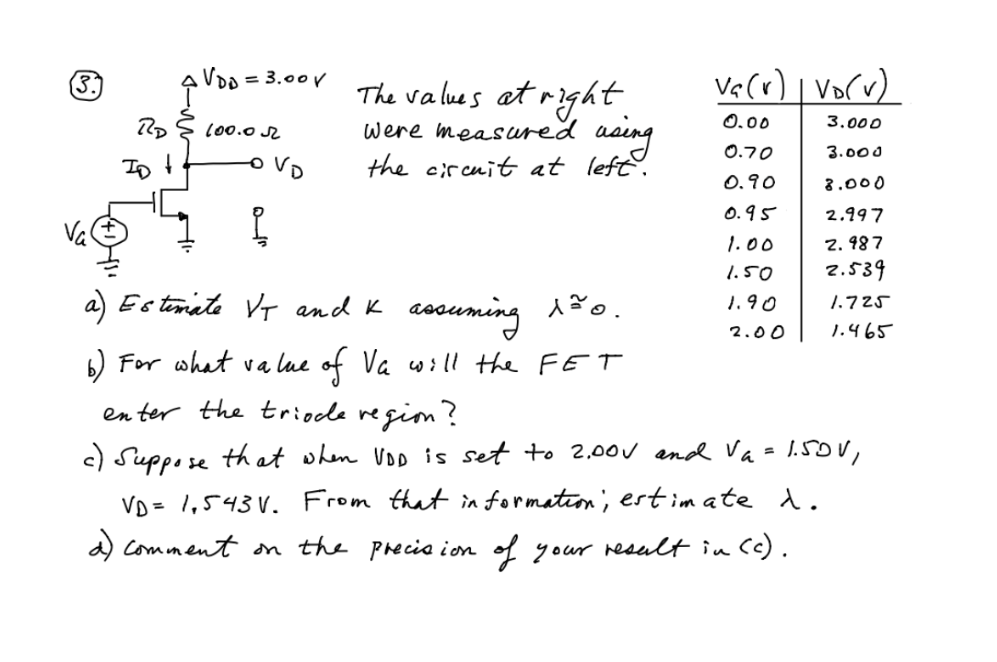 3.
VDD = 3.00V
RD 100.0 Ω
ID ↓ VD
VG
The values at right
were measured using
the circuit at left.
VG(V) | VD(V)
0.00 3.000
0.70 3.000
0.90 3.000
0.95 2.997
1.00 2.987
1.50 2.539
1.90 1.725
2.00 1.465
a) Estimate VT and K assuming λ ≅ 0.
b) For what value of VG will the FET
enter the triode region?
c) Suppose that when VDD is set to 2.00V and VG = 1.50V,
VD = 1.543V. From that information, estimate λ.
d) Comment on the precision of your result in (c).